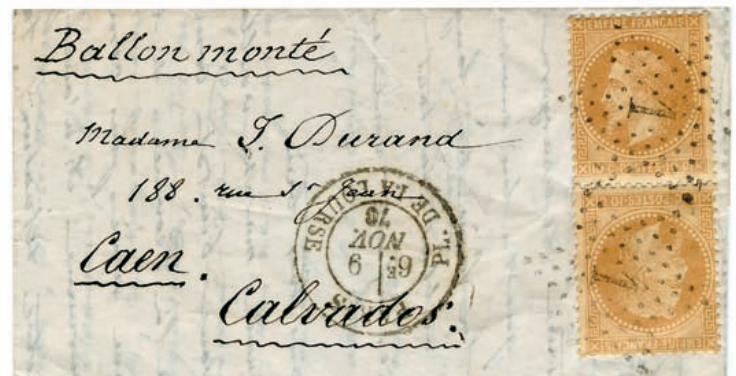 Ballon monté
Madame J. Durand
188. rue St Jean
Caen.
Calvados.
PL. DE LA BOURSE
6E 9
NOV.
70
EMPIRE FRANÇAIS
1
1